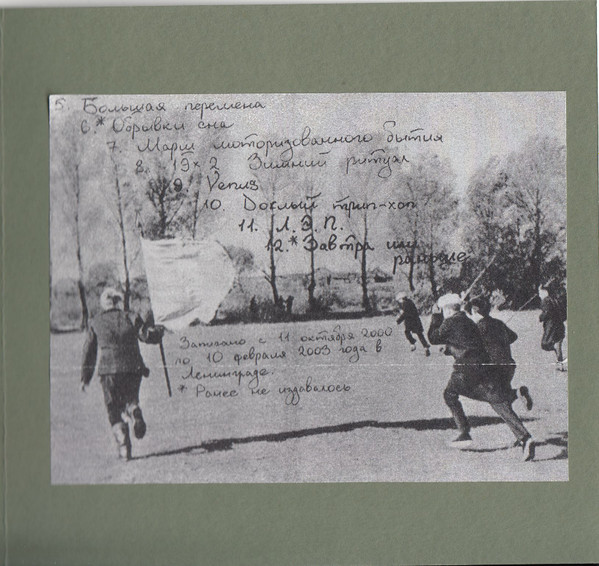 5. Большая перемена
6.* Обрывки сна
7. Марш моторизованного бытия
8. 15 x 2. Зимний ритуал
9. Venus
10. Дохлый трип-хоп
11. Л.Э.П.
12.* Завтра или
раньше
Записано с 11 октября 2000
по 10 февраля 2003 года в
Ленинграде.
* Ранее не издавалось